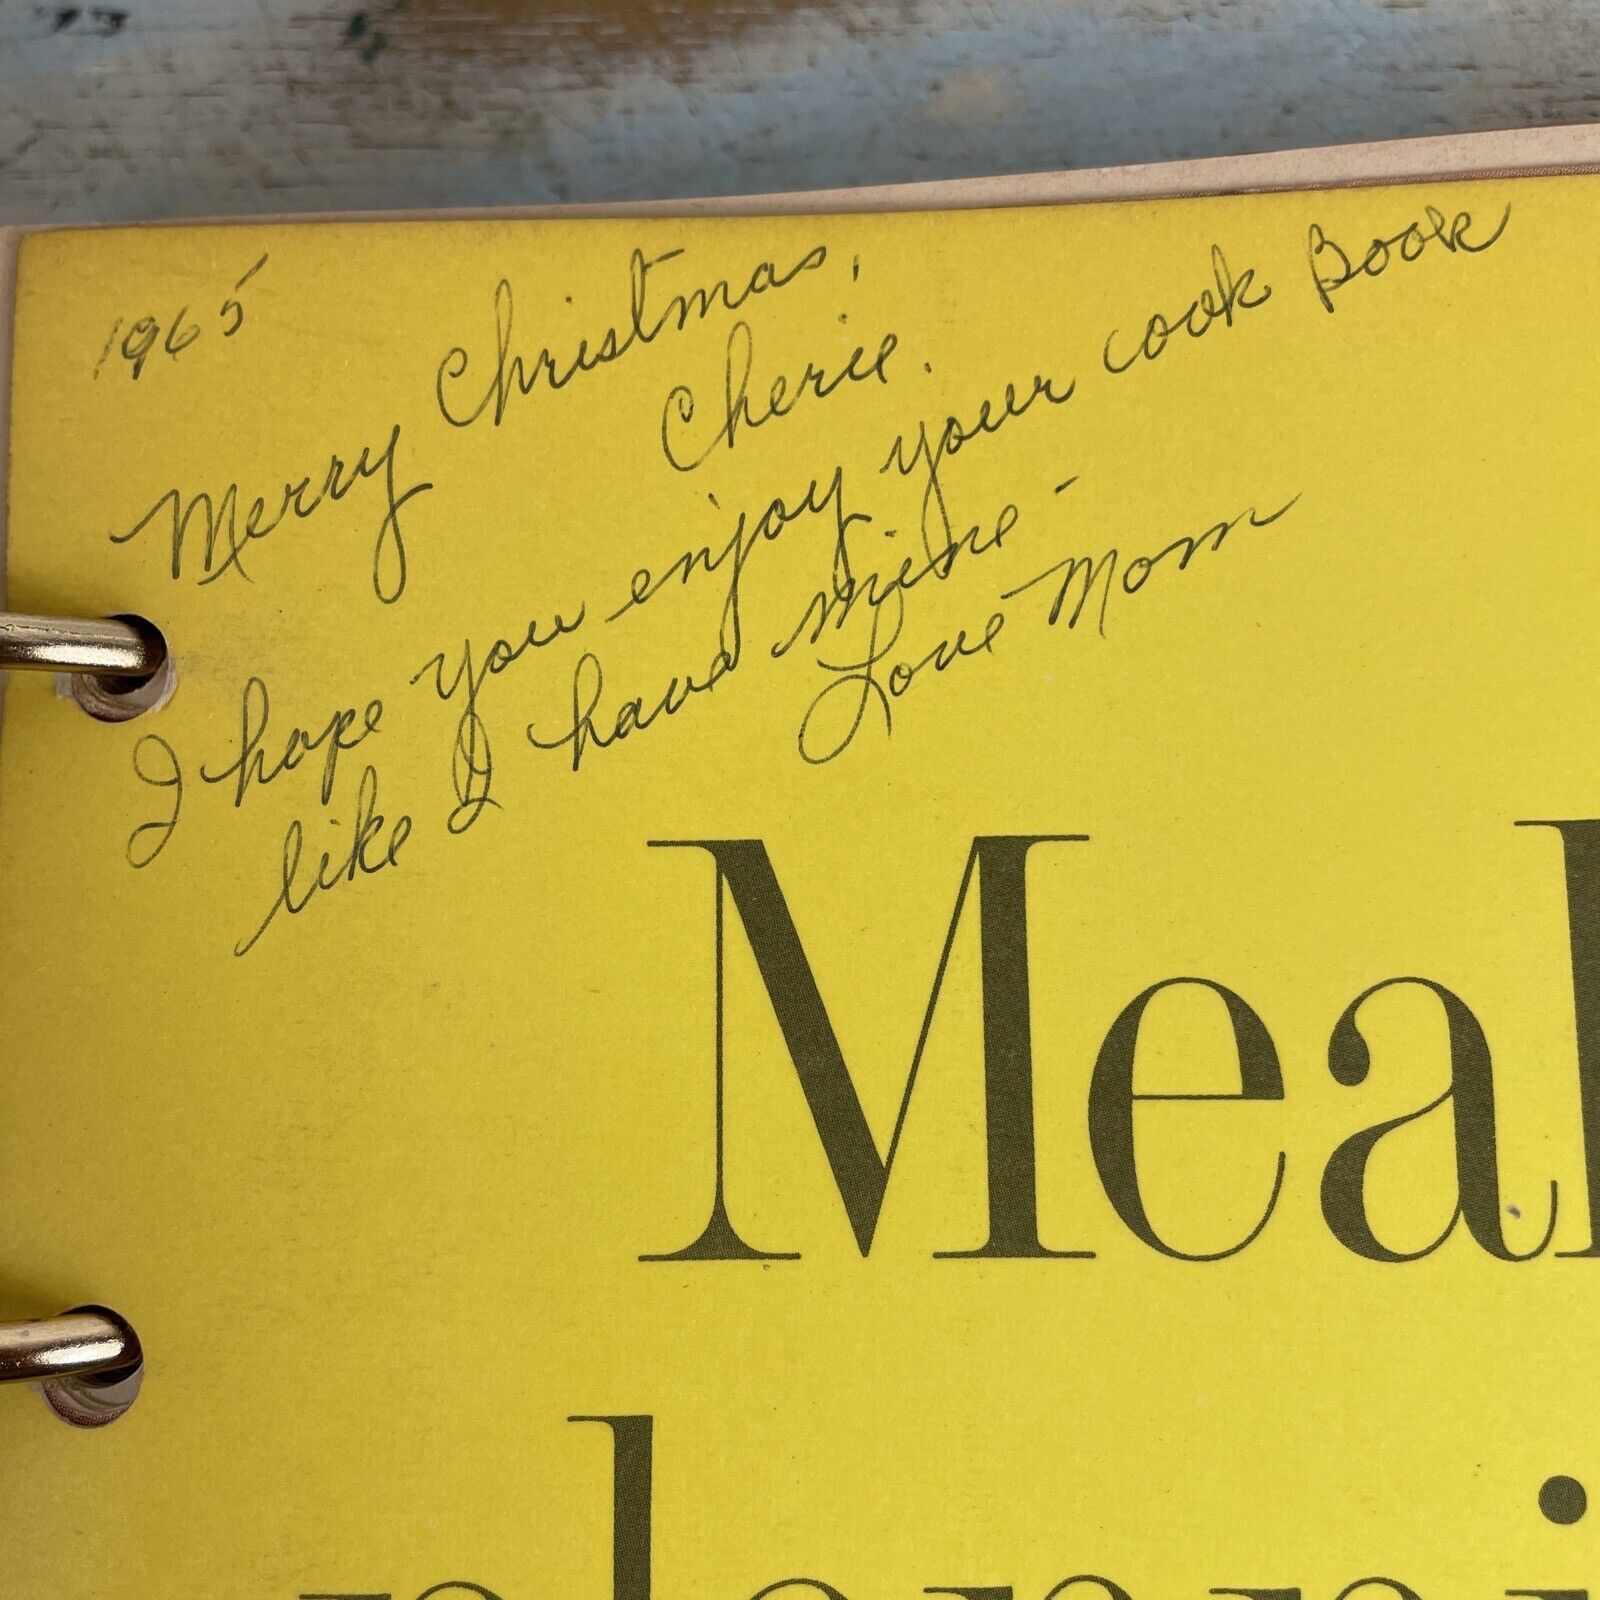 1965
Merry Christmas,
Cherie.
I hope you enjoy your cook Book
like I have mine -
Love Mom
Meal
planni